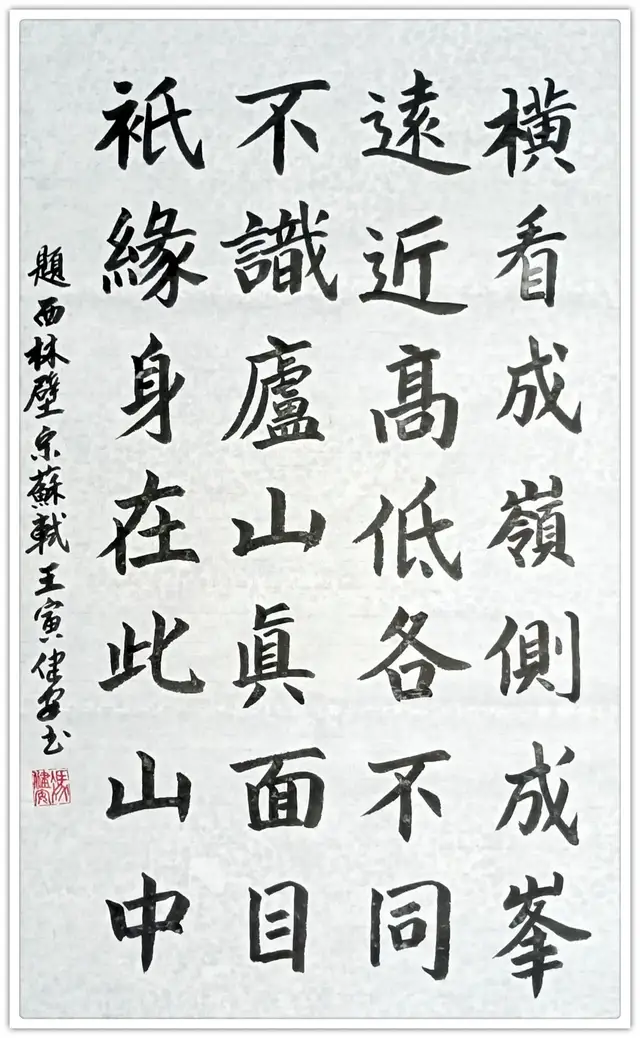 橫看成嶺側成峯
遠近髙低各不同
不識廬山眞面目
衹緣身在此山中
題西林壁宋蘇軾王寅健安书